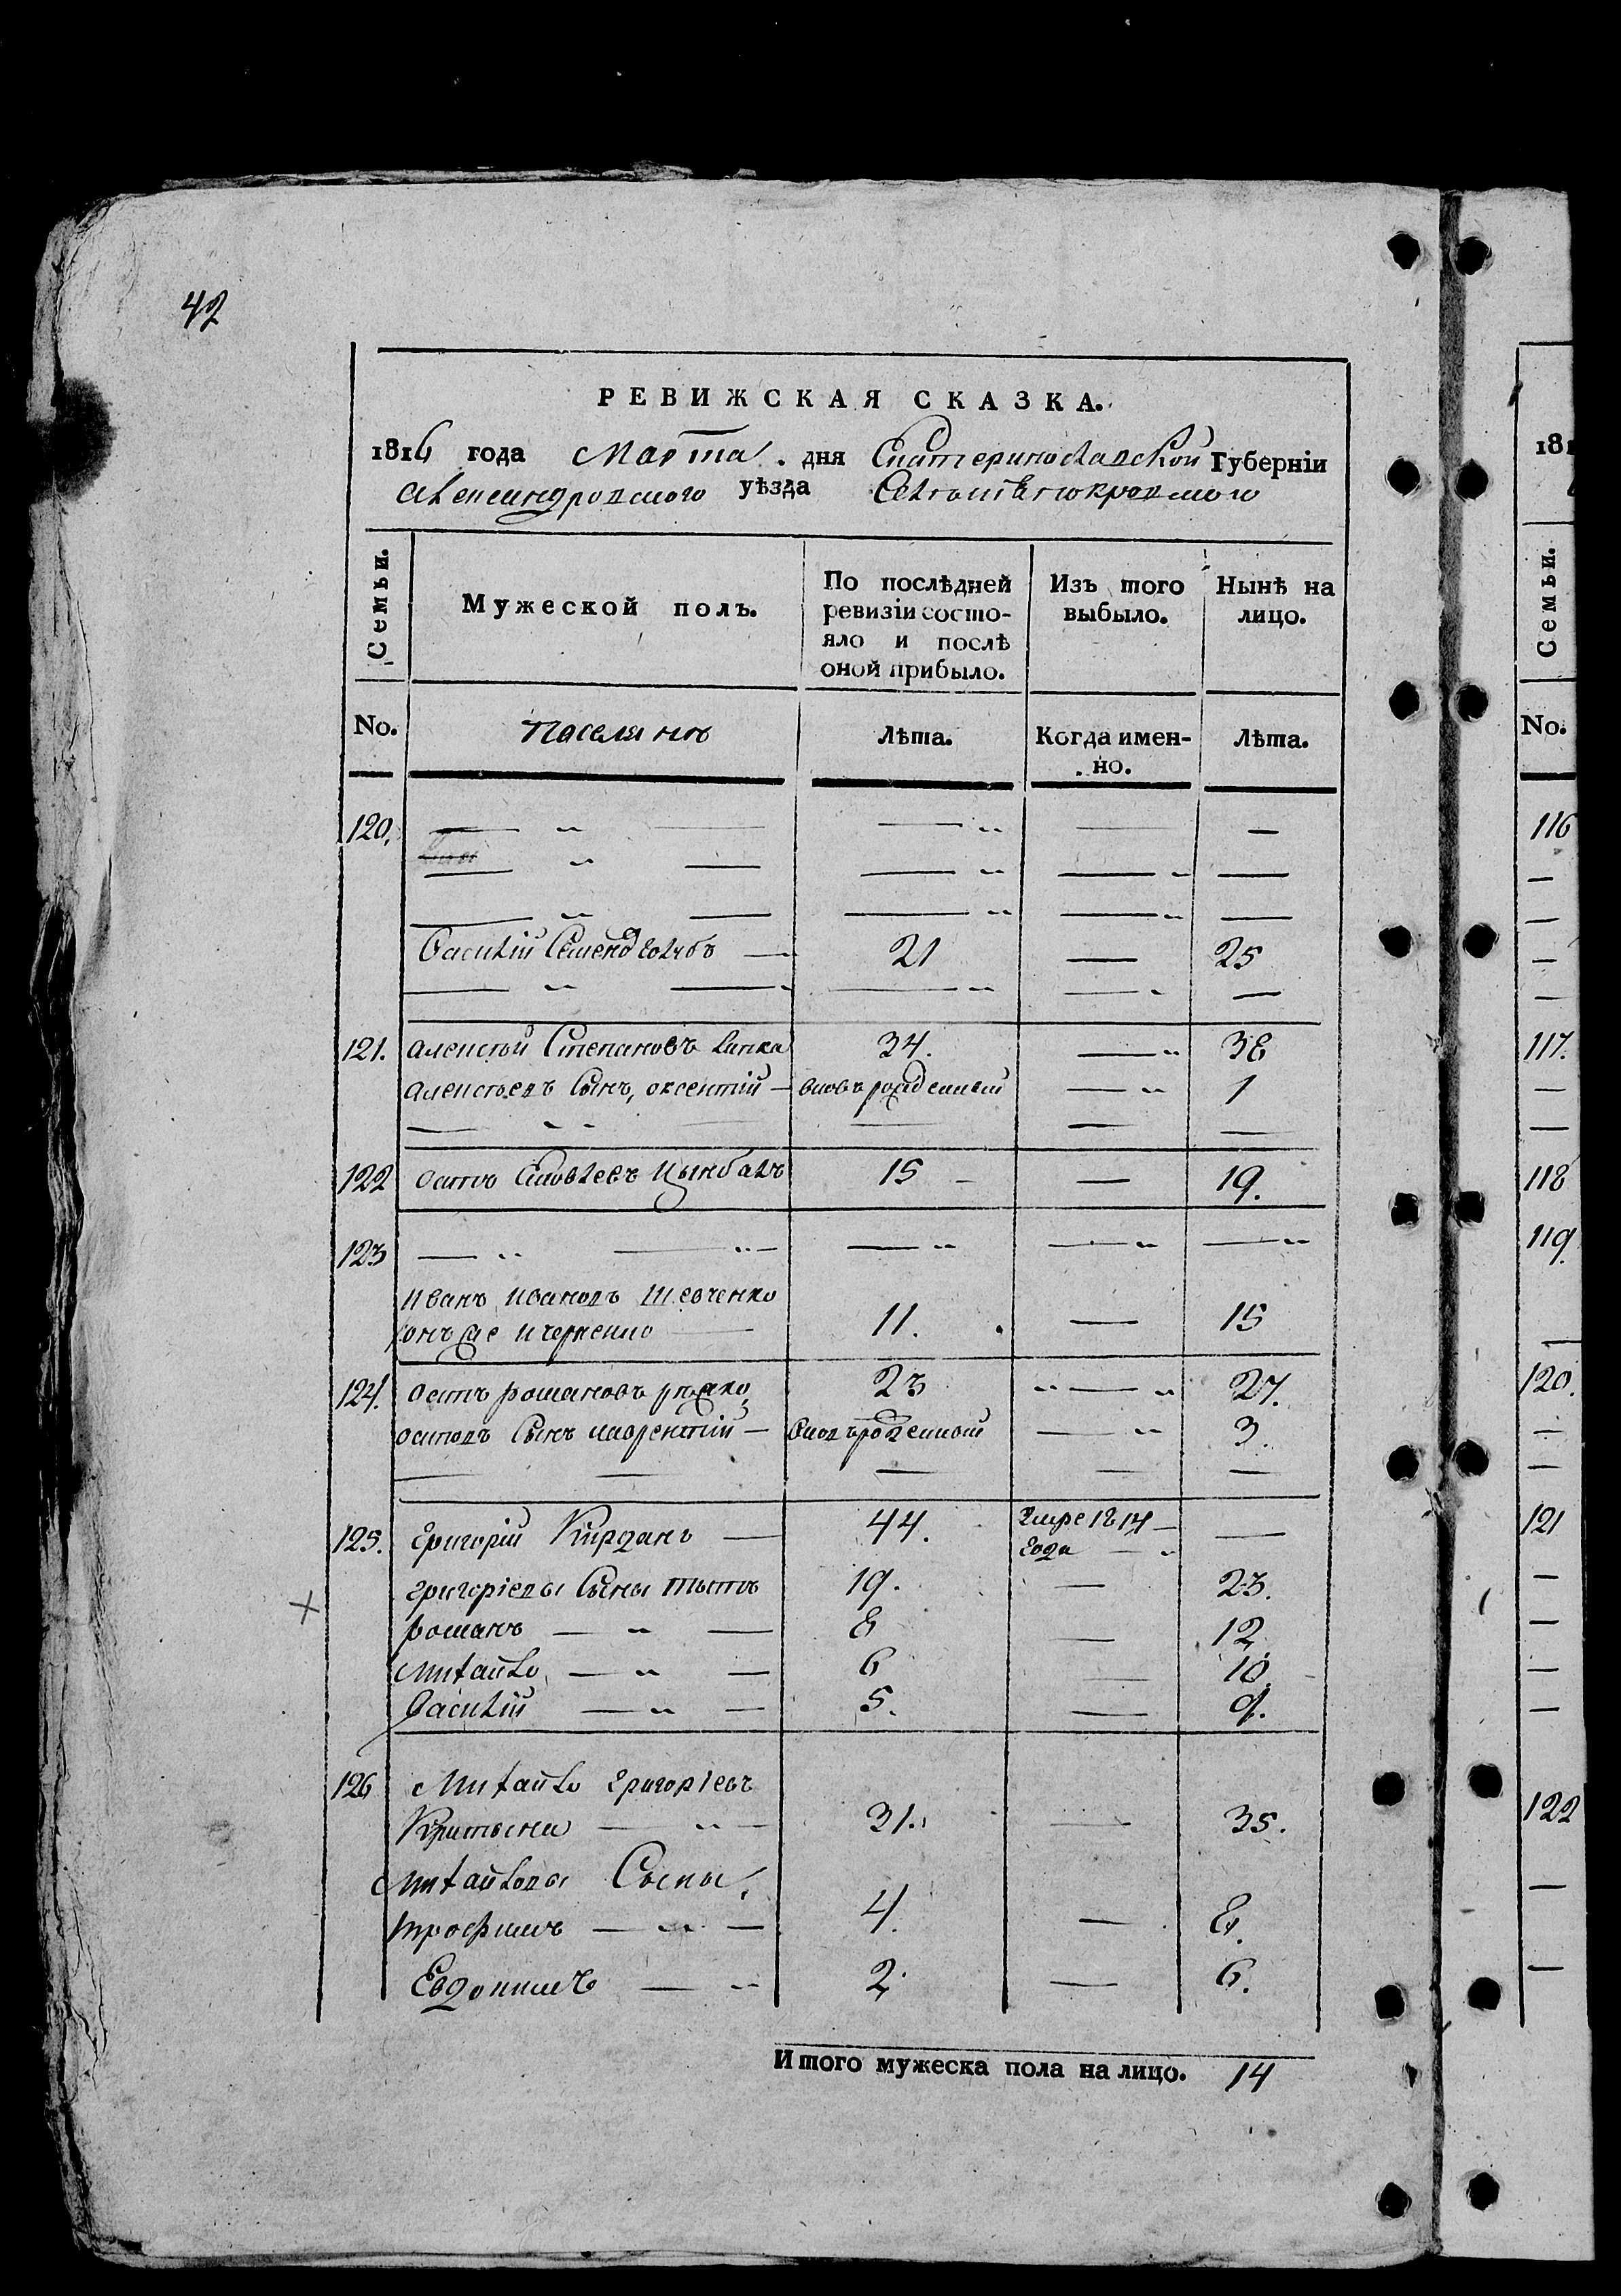 42
РЕВИЖСКАЯ СКАЗКА.
1816 года Марта . дня Екатеринославской Губерніи
Александровского уѣзда
Семьи.
Мужеской полъ.
По послѣдней ревизіи состо-
яло и послѣ
оной прибыло.
Изъ того
выбыло.
Нынѣ на
лицо.
No. Поселянъ Лѣта. Когда имен-
но. Лѣта.
120. — „ — — „ — —
— „ — — „ — „ —
— „ — — „ — „ —
Василій Семеновъ — 21 — 25
— „ — — „ — „ —
121. Алексѣй Степановъ Лапка 34. — „ 38
Алексѣевъ Сынъ, оксентій — вновърожденный — „ 1
— „ — — — —
122 осипъ Яковлевъ Цымбалъ 15 — — 19.
123 — „ — „ — — „ — „ — „
Иванъ Ивановъ Шевченко
онъ же и черненко — 11. — 15
124. осипъ романовъ 23 „ — „ 27.
осиповъ Сынъ лаврентій — Вновърожденный — „ 3.
— — — — —
125. Григорій Кирданъ — 44. Умре 1814 —
Года — „ —
Григоріевы Сыны Титъ 19. — 23.
романъ — „ — 8 — 12.
Михайло — „ — 6 — 10.
Василій — „ — 5. — 9.
126 Михайло Григоріевъ
— „ — 31. — 35.
Михайловы Сыны,
трофимъ — „ — 4. — 8.
Евдокимъ — „ 2. — 6.
Итого мужеска пола на лицо. 14
181
Семьи.
No.
116
117.
118
119.
120.
121
122